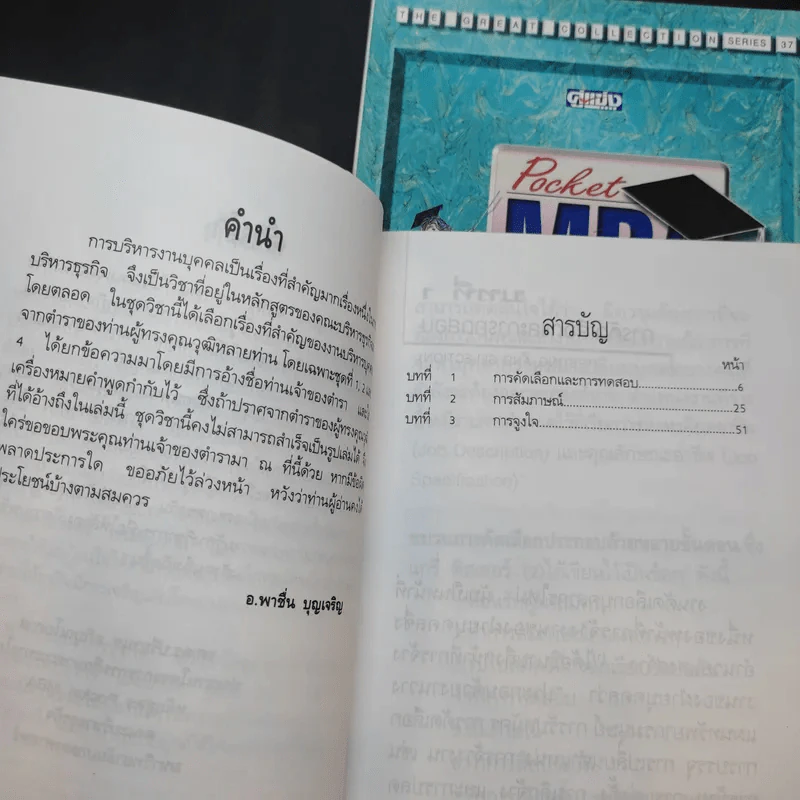 THE GREAT COLLECTION SERIES 37
คู่แข่ง
Pocket
MBA
คำนำ
การบริหารงานบุคคลเป็นเรื่องที่สำคัญมากเรื่องหนึ่ง
บริหารธุรกิจ จึงเป็นวิชาที่อยู่ในหลักสูตรของคณะบริหารธุรกิจ
โดยตลอด ในชุดวิชานี้ได้เลือกเรื่องที่สำคัญของงานบริหารบุคคล
จากตำราของท่านผู้ทรงคุณวุฒิหลายท่าน โดยเฉพาะชุดที่ 1, 2
4 ได้ยกข้อความมาโดยมีการอ้างชื่อท่านเจ้าของตำรา และ
เครื่องหมายคำพูดกำกับไว้ ซึ่งถ้าปราศจากตำราของผู้ทรงคุณ
ที่ได้อ้างถึงในเล่มนี้ ชุดวิชานี้คงไม่สามารถสำเร็จเป็นรูปเล่มได้
ใคร่ขอขอบพระคุณท่านเจ้าของตำรามา ณ ที่นี้ด้วย หากมีข้อ
พลาดประการใด ขออภัยไว้ล่วงหน้า หวังว่าท่านผู้อ่านคงได้
ประโยชน์บ้างตามสมควร
อ.พาชื่น บุญเจริญ
สารบัญ
หน้า
บทที่ 1 การคัดเลือกและการทดสอบ 6
บทที่ 2 การสัมภาษณ์ 25
บทที่ 3 การจูงใจ 51